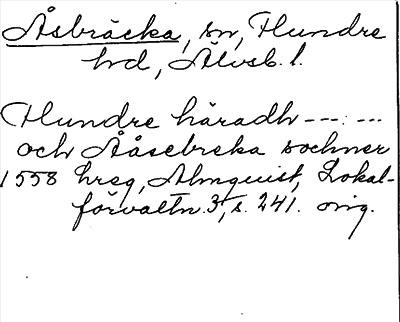 Åsbräcka, sn, Flundre
hrd, Älvsb. l.
Flundre häradh ---: ---
och Ååsebreka sochner
1558 hreg, Almquist, Lokal-
förvaltn. 3, s. 241. orig.